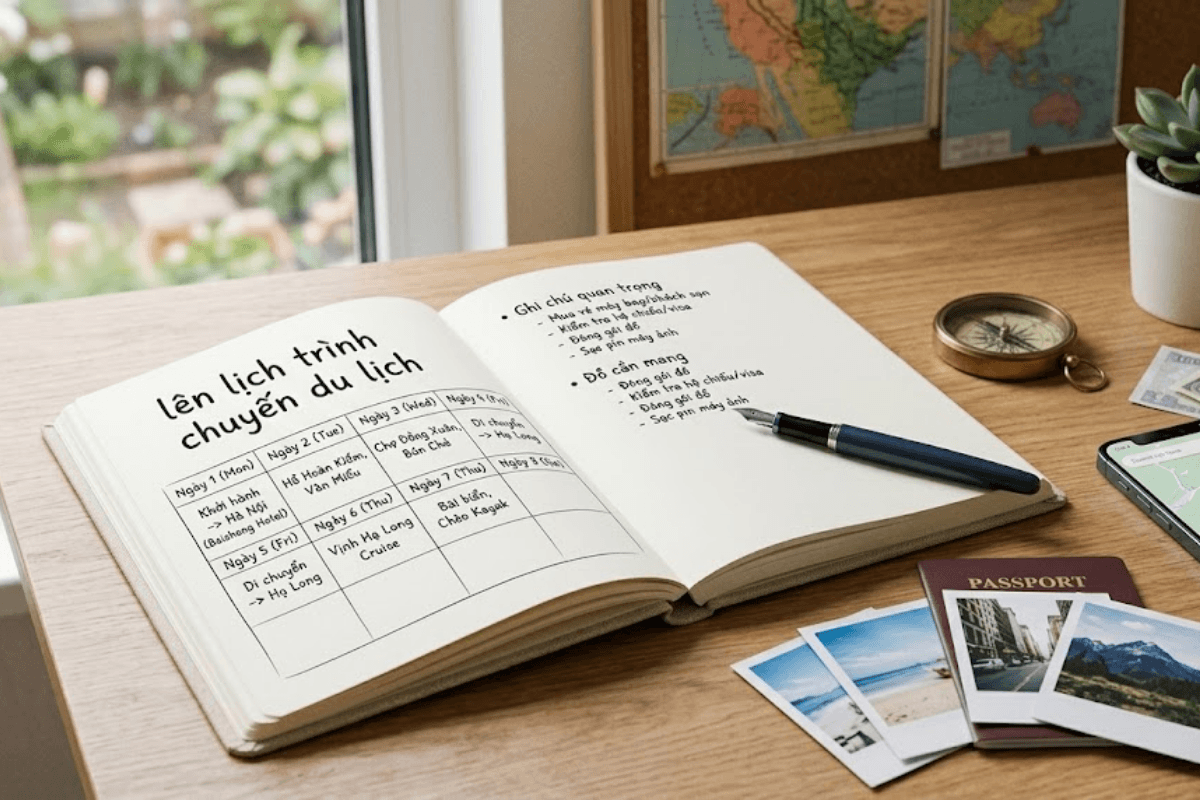 lên lịch trình
chuyến du lịch
Ngày 1 (Mon)
Ngày 2 (Tue)
Ngày 3 (Wed)
Ngày 4 (Fri)
Khởi hành
-> Hà Nội
(Baishong Hotel)
Hồ Hoàn Kiếm,
Văn Miếu
Chợ Đồng Xuân,
Bún Chả
Di chuyển
-> Hạ Long
Ngày 5 (Fri)
Ngày 6 (Thu)
Ngày 7 (Thu)
Ngày 8
Di chuyển
-> Hạ Long
Vịnh Hạ Long
Cruise
Bãi biển,
Chèo Kayak
• Ghi chú quan trọng
- Mua vé máy bay/khách sạn
- Kiểm tra hộ chiếu/visa
- Đóng gói đồ
- Sạc pin máy ảnh
• Đồ cần mang
- Đóng gói đồ
- Kiểm tra hộ chiếu/visa
- Đóng gói đồ
- Sạc pin máy ảnh
PASSPORT